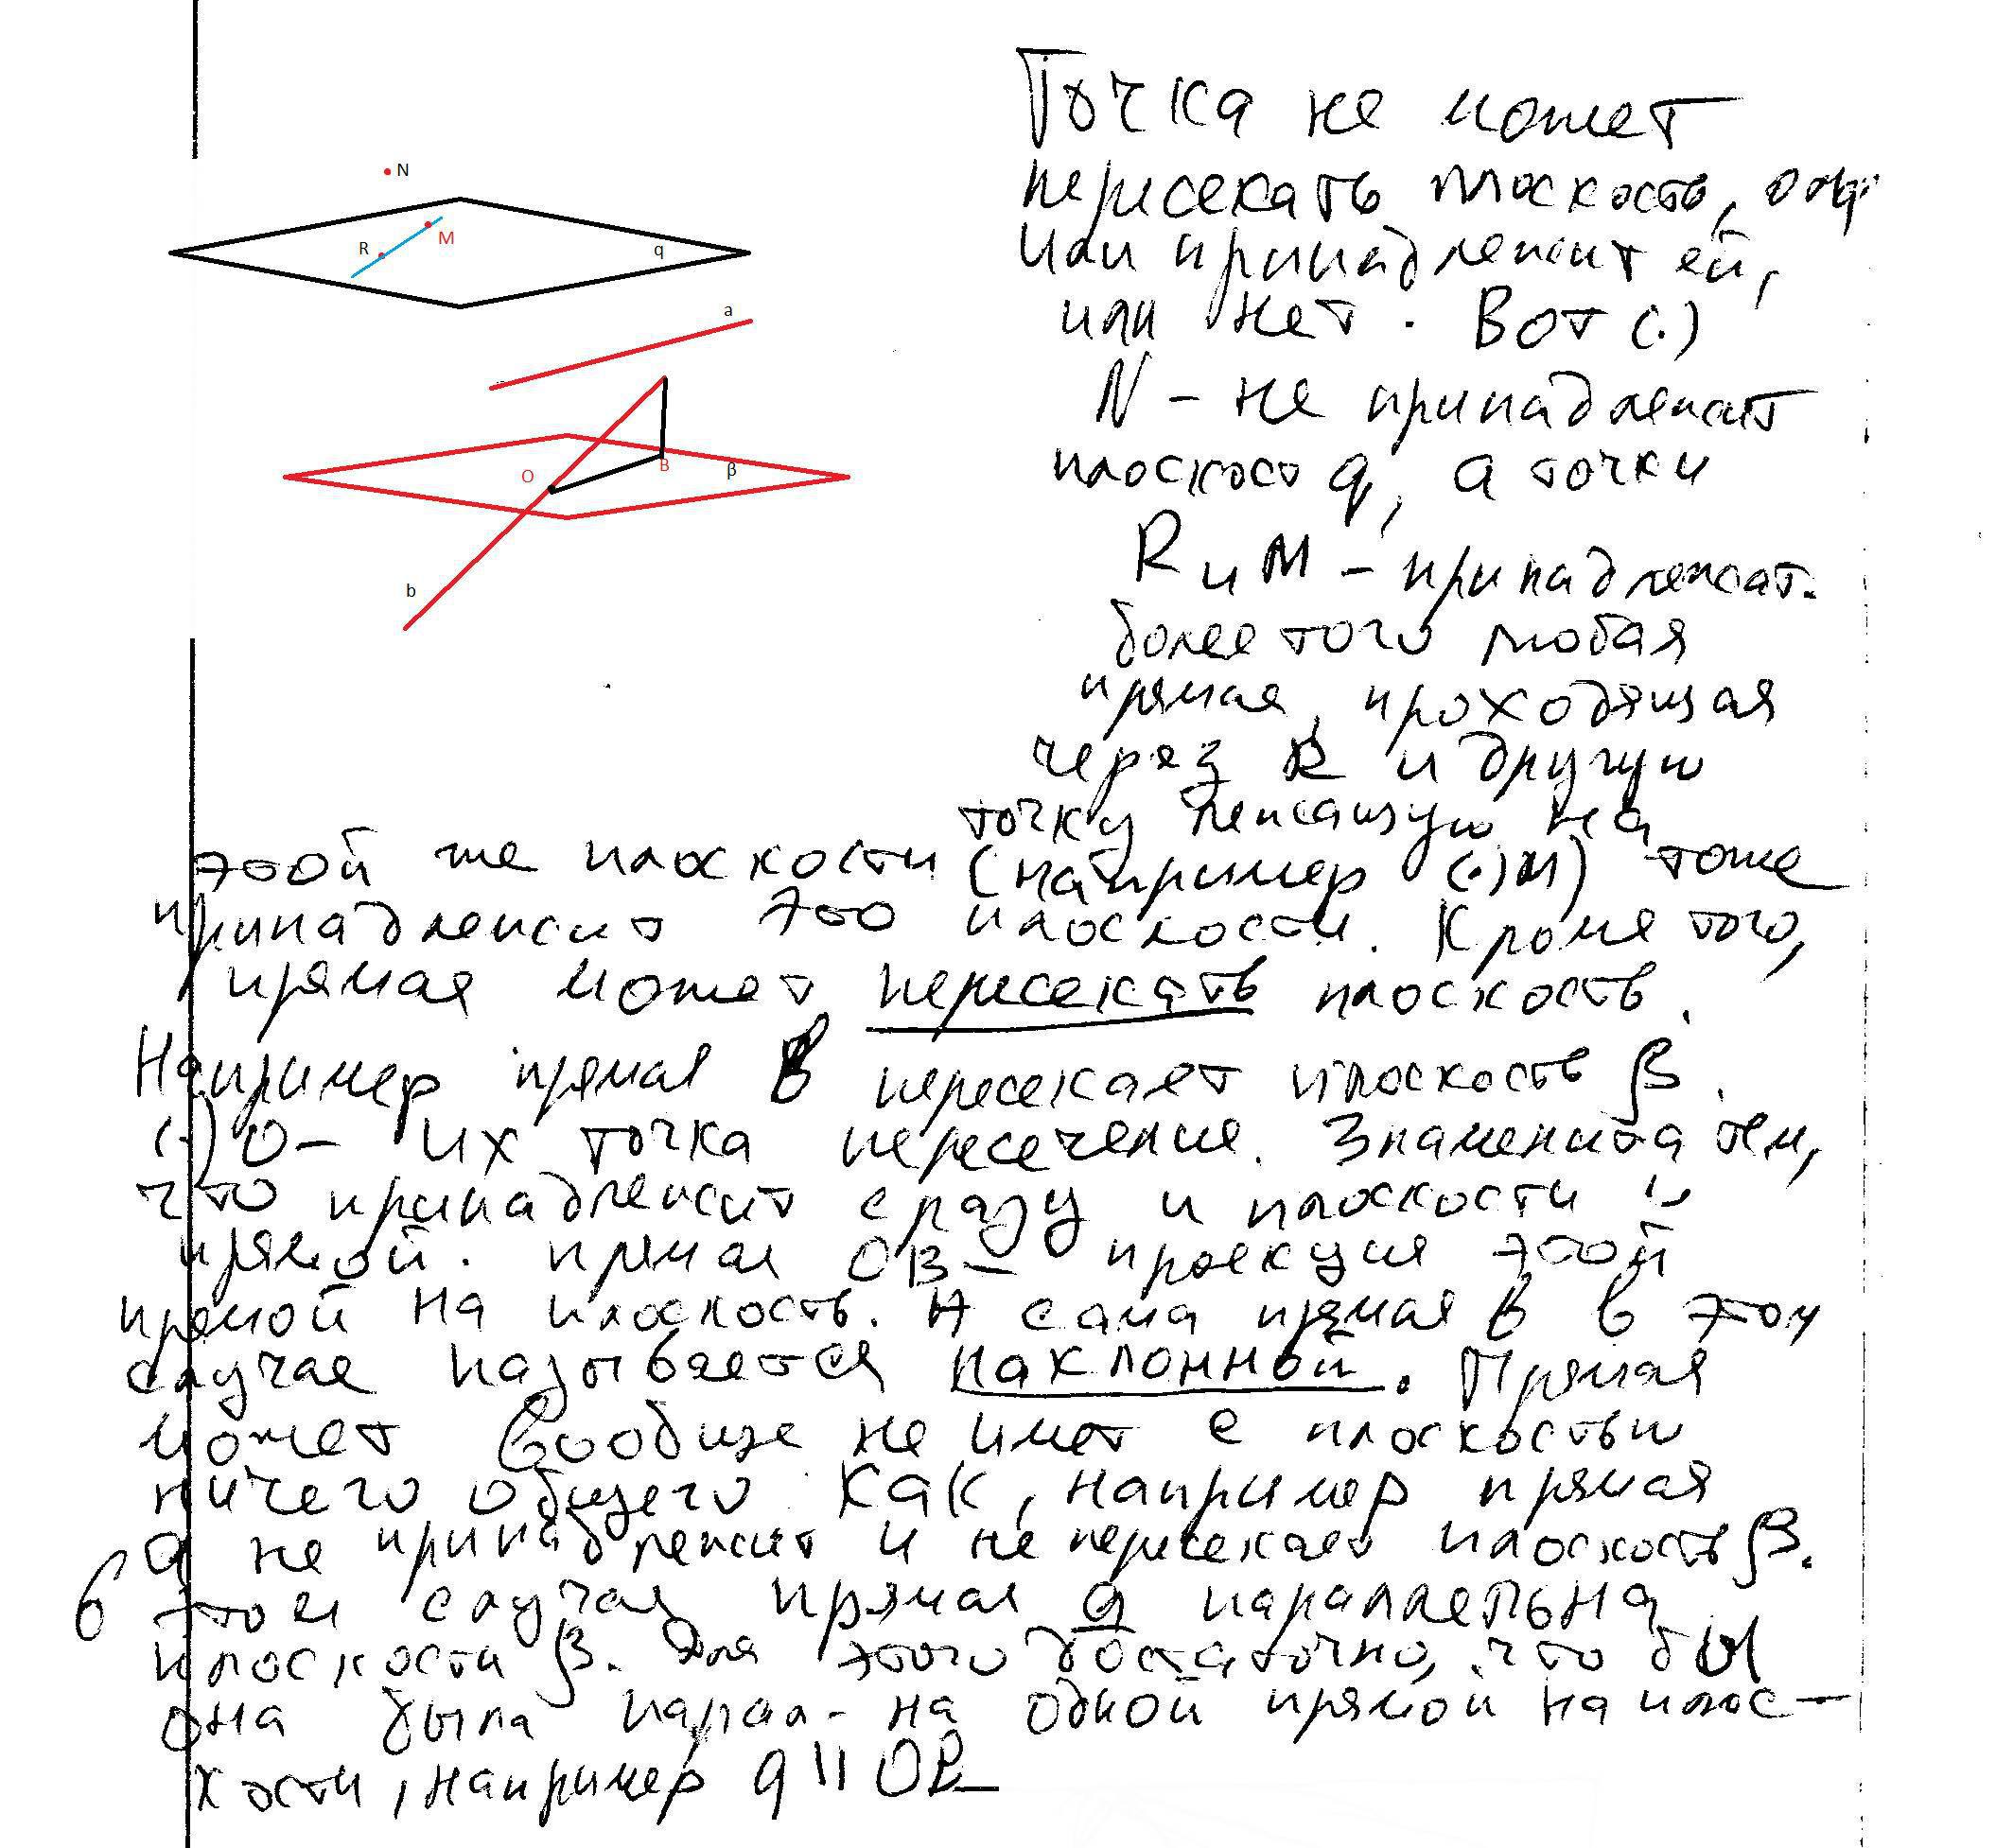 N
M
R
q
a
O
B
β
b
Точка не может
пересекать плоскость,
или принадлежит ей,
или нет. Вот (.)
N - не принадлежит
плоскост q, а точки
R и M - принадлежат.
более того любая
прямая, проходящая
через R и другую
точку лежащую на
этой же плоскости (например (.) М) тоже
принадлежит это плоскости. Кроме того,
прямая может пересекать плоскость.
Например прямая b пересекает плоскость β.
(.) О - их точка пересечение. Знаменита тем,
что принадлежит сразу и плоскости и
прямой. прямая ОВ - проекция этой
прямой на плоскость. А сама прямая b в этом
случае называется наклонной. Прямая
может вообще не имет с плоскостью
ничего общего. Как, например прямая
a не принадлежит и не пересекает плоскость β.
в этом случае прямая a параллельна
плоскости β. Для этого достаточно, что бы
она была парал-на одной прямой на плос-
кости, например a || OB